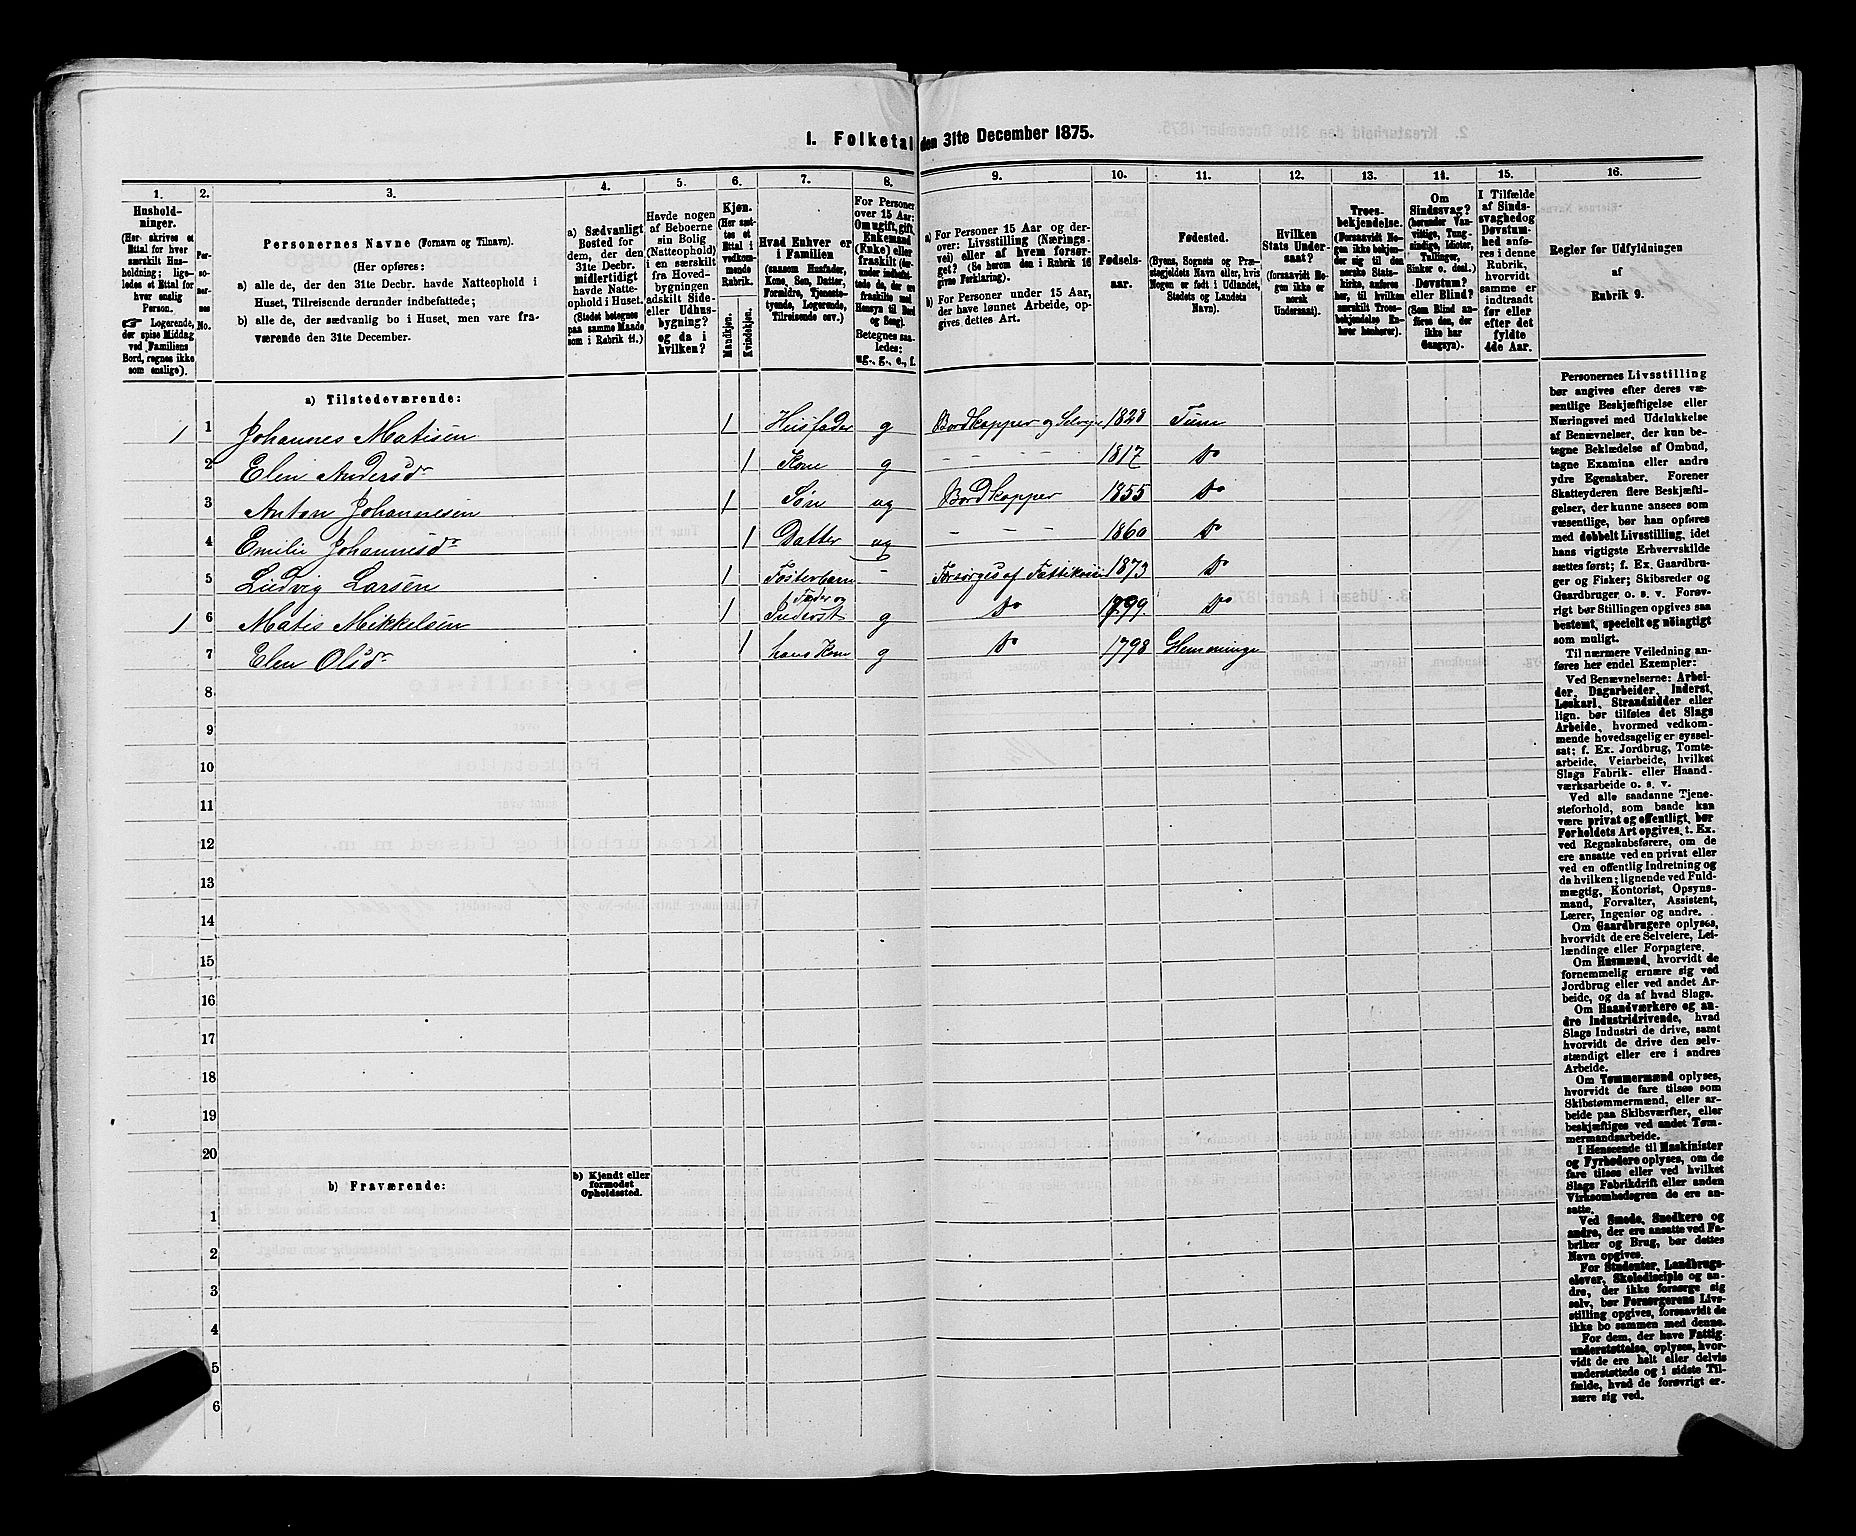 1. Folketal den 31te December 1875.
1. 2. 3. 4. 5. 6. 7. 8. 9. 10. 11. 12. 13. 14. 15. 16.
Hushold-
ninger.
(Her skrives et
Ettal for hver
særskilt Hus-
holdning; lige-
ledes et Ettal for
hver enslig
Person.
☞ Logerende,
der spise Middag
ved Familiens
Bord, regnes ikke
som enslige).
Per-
so-
ner-
nes
No.
Personernes Navne (Fornavn og Tilnavn).
(Her opføres:
a) alle de, der den 31te Decbr. havde Natteophold i
Huset, Tilreisende derunder indbefattede;
b) alle de, der sædvanlig bo i Huset, men vare fra-
værende den 31te December.
a) Sædvanligt
Bosted for
dem, der den
31te Decbr.
midlertidigt
havde Natte-
ophold i Huset.
(Stedet betegnes
paa samme Maade
som i Rubrik 11.)
Havde nogen
af Beboerne
sin Bolig
(Natteophold)
i en særskilt
fra Hoved-
bygningen
adskilt Side-
eller Udhus-
bygning?
og da i
hvilken?
Kjøn.
(Her sæt-
tes et
Ettal i
vedkom-
mende
Rubrik.
Mandkjøn.
Kvindekjøn.
Hvad Enhver er
i Familien
(saasom Husfader,
Kone, Søn, Datter,
Forældre, Tjeneste-
tyende, Logerende,
Tilreisende osv.)
For Personer
over 15 Aar:
Om ugift, gift,
Enkemand
(Enke) eller
fraskilt (der-
under indbefat-
tede de, der ere
fraskilte med
Hensyn til Bord
og Seng).
Betegnes saa-
ledes:
ug., g., e., f.
a) For Personer 15 Aar og der-
over: Livsstilling (Nærings-
vei) eller af hvem forsør-
get? (Se herom den i Rubrik 16
givne Forklaring).
b) For Personer under 15 Aar,
der have lønnet Arbeide, op-
gives dettes Art.
Fødsels-
aar.
Fødested.
(Byens, Sognets og Præ-
stegjeldets Navn eller, hvis
Nogen er født i Udlandet,
Stedets og Landets
Navn).
Hvilken
Stats Under-
saat?
(forsaavidt No-
gen ikke er
norsk
Undersaat).
Troes-
bekjendelse.
(Forsaavidt No-
gen ikke beken-
der sig til den
norske Stats-
kirke, anføres
her, til hvilken
særskilt Troes-
bekjendelse En-
hver henhører).
Om
Sindssvag?
(herunder Van-
vittige, Tung-
sindige, Idioter,
Tullinger,
Sinker o. desl.)
Døvstum?
eller Blind?
(Som Blind an-
føres den, der
ikke har
Gangsyn).
I Tilfælde
af Sinds-
svaghed og
Døvstum-
hed anfø-
res i denne
Rubrik,
hvorvidt
samme er
indtraadt
før eller
efter det
fyldte
4de Aar.
Regler for Udfyldningen
af
Rubrik 9.
a) Tilstedeværende:
1 1 Johannes Matisen 1 Husfader g Bordkapper og Selveje 1828 Tune
2 Elen Andersdr 1 Kone g - - - - 1817 Do
3 Anton Johannesen 1 Søn ug Bordkapper 1855 Do
4 Emilie Johannesdr 1 Datter ug - - 1860 Do
5 Ludvig Larsen 1 Fosterbarn - Forsørges af 1873 Do
1 6 Matis Mikkelsen 1 Fader og Inderst g Do 1799. Do
7 Elen Olsdr 1 hans Kone g Do 1798 Glemminge
8
9
10
11
12
13
14
15
16
17
18
19
20
b) Fraværende:
b) Kjendt eller
formodet
Opholdssted.
1
2
3
4
5
6
Personernes Livsstilling
bør angives efter deres væ-
sentlige Beskjæftigelse eller
Næringsvei med Udelukkelse
af Benævnelser, der kun be-
tegne Beklædelse af Ombud,
tagne Examina eller andre
ydre Egenskaber. Forener
Skatteyderen flere Beskjæfti-
gelser, der kunne ansees som
væsentlige, bør han opføres
med dobbelt Livsstilling, idet
hans vigtigste Erhvervskilde
sættes først; f. Ex. Gaardbru-
ger og Fisker; Skibsreder og
Gaardbruger o. s. v. Forøv-
rigt bør Stillingen opgives saa
bestemt, specielt og nøiagtigt
som muligt.
Til nærmere Veiledning an-
føres her endel Exempler:
Ved Benævnelserne: Arbei-
der, Dagarbeider, Inderst,
Løskarl, Strandsidder eller
lign. bør tilføies det Slags
Arbeide, hvormed vedkom-
mende hovedsagelig er syssel-
sat; f. Ex. Jordbrug, Tomte-
arbeide, Veiarbeide, hvilket
Slags Fabrik- eller Haand-
værksarbeide o. s. v.
Ved alle saadanne Tjene-
steforhold, som baade kan
være privat og offentligt, bør
Forholdets Art opgives, t. Ex.
ved Regnskabsførere, om de
ere ansatte ved en privat eller
ved en offentlig Indretning og
da hvilken; lignende ved Fuld-
mægtig, Kontorist, Opsyns-
mand, Forvalter, Assistent,
Lærer, Ingeniør og andre.
Om Gaardbrugere oplyses,
hvorvidt de ere Selveiere, Lei-
lændinge eller Forpagtere.
Om Husmænd, hvorvidt de
fornemmelig ernære sig ved
Jordbrug eller ved andet Ar-
beide, og da af hvad Slags.
Om Haandværkere og an-
dre Industridrivende, hvad
Slags Industri de drive, samt
hvorvidt de drive den selv-
stændigt eller ere i andres
Arbeide.
Om Tømmermænd oplyses,
hvorvidt de fare tilsøs som
Skibstømmermænd, eller ar-
beide paa Skibsværfter, eller
beskjæftiges ved andet Tøm-
mermandsarbeide.
I Henseende til Maskinister
og Fyrbødere oplyses, om de
fare tilsøs eller ved hvilket
Slags Fabrikdrift eller anden
Virksomhedsgren de ere an-
satte.
Ved Smede, Snedkere og
andre, der ere ansatte ved Fa-
briker og Brug, bør dettes
Navn opgives.
For Studenter, Landbrugs-
elever, Skoledisciple og an-
dre, der ikke forsørge sig
selv, bør Forsørgerens Livs-
stilling opgives, forsaavidt de
ikke bo sammen med denne.
For dem, der have Fattig-
understøttelse, oplyses, hvor-
vidt de ere helt eller delvis
understøttede og i sidste Til-
fælde, hvad de forøvrigt er-
nære sig ved.